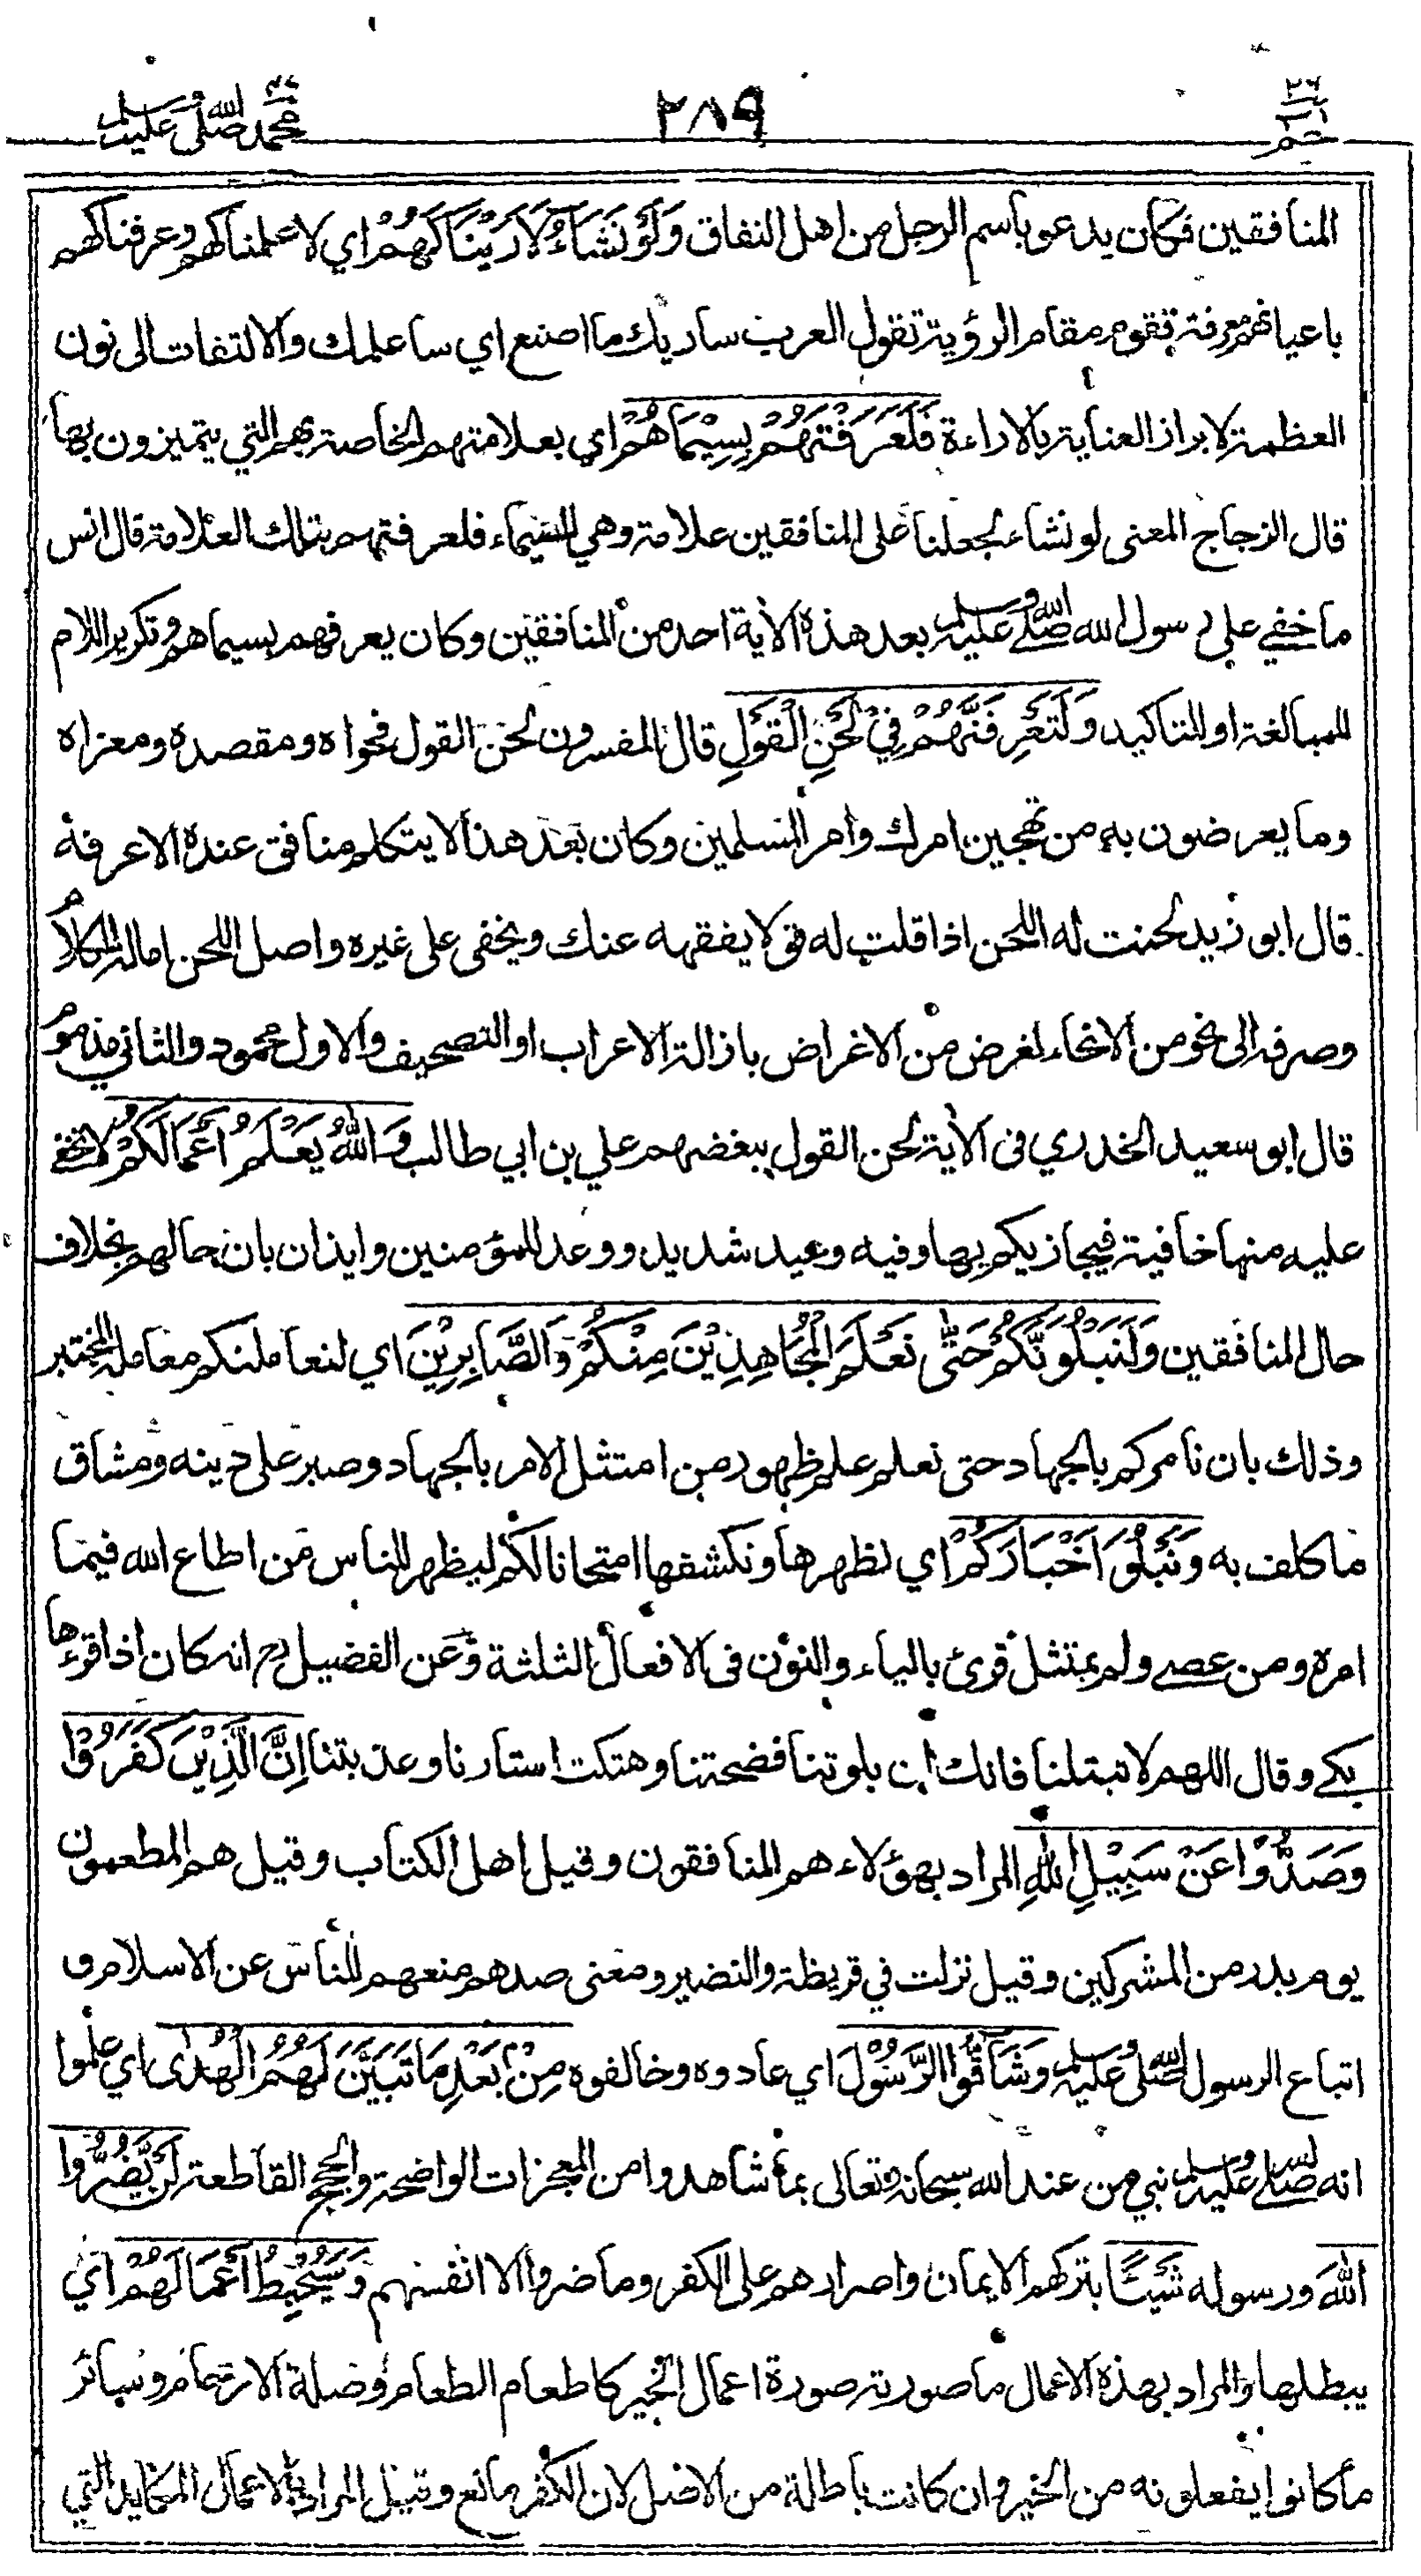 حم ٢٦ ٢٨٩ محمد صلى الله عليه وسلم ٤٧
المنافقين فكان يدعو باسم الرجل من اهل النفاق وَلَوْ نَشَاءُ لَأَرَيْنَاكَهُمْ اي لاعلمناكهم وعرفناكهم
باعيانهم معرفة تقوم مقام الرؤية تقول العرب ساريك ما اصنع اي ساعلمك والالتفات الى نون
العظمة لابراز العناية بالاراءة فَلَعَرَفْتَهُمْ بِسِيْمَاهُمْ اي بعلامتهم الخاصة بهم التي يتميزون بها
قال الزجاج المعنى لو نشاء لجعلنا على المنافقين علامة وهي السيماء فلعرفتهم بتلك العلامة قال انس
ما خفي على رسول الله صلى الله عليه وسلم بعد هذه الأية احد من المنافقين وكان يعرفهم بسيماهم وتكرير اللام
للمبالغة او للتاكيد وَلَتَعْرِفَنَّهُمْ فِيْ لَحْنِ الْقَوْلِ قال المفسرون لحن القول فحواه ومقصده ومغزاه
وما يعرضون به من تهجين امرك وامر المسلمين وكان بعد هذا لا يتكلم منافق عنده الا عرفه
قال ابو زيد لحنت له اللحن اذا قلت له قولا يفقهه عنك ويخفى على غيره واصل اللحن امالة الكلام
وصرفه الى نحو من الانحاء لغرض من الاغراض بازالة الاعراب او التصحيف والاول محمود والثاني مذموم
قال ابو سعيد الخدري في الأية لحن القول ببغضهم علي بن ابي طالب وَاللهُ يَعْلَمُ اَعْمَالَكُمْ لا تخفى
عليه منها خافية فيجازيكم بها وفيه وعيد شديد ووعد للمؤمنين وايذان بان حالهم بخلاف
حال المنافقين وَلَنَبْلُوَنَّكُمْ حَتَّى نَعْلَمَ الْمُجَاهِدِيْنَ مِنْكُمْ وَالصَّابِرِيْنَ اي لنعاملنكم معاملة المختبر
وذلك بان نامركم بالجهاد حتى نعلم علم ظهور من امتثل الامر بالجهاد وصبر على دينه ومشاق
ما كلف به وَنَبْلُوَ اَخْبَارَكُمْ اي نظهرها ونكشفها امتحانا لكم ليظهر للناس من اطاع الله فيما
امره ومن عصى ولم يمتثل قرئ بالياء والنون في الافعال الثلثة وعن الفضيل رح انه كان اذا قرءها
بكى وقال اللهم لا تبتلنا فانك ان بلوتنا فضحتنا وهتكت استارنا وعذبتنا اِنَّ الَّذِيْنَ كَفَرُوْا
وَصَدُّوْا عَنْ سَبِيْلِ اللهِ المراد بهؤلاء هم المنافقون وقيل اهل الكتاب وقيل هم المطعمون
يوم بدر من المشركين وقيل نزلت في قريظة والنضير ومعنى صدهم منعهم للناس عن الاسلام و
اتباع الرسول صلى الله عليه وسلم وَشَاقُّوا الرَّسُوْلَ اي عادوه وخالفوه مِنْ بَعْدِ مَا تَبَيَّنَ لَهُمُ الْهُدٰى اي علموا
انه صلى الله عليه وسلم نبي من عند الله سبحانه وتعالى بما شاهدوا من المعجزات الواضحة والحجج القاطعة لَنْ يَضُرُّوا
اللهَ ورسوله شَيْـًٔا بتركهم الايمان واصرارهم على الكفر وما ضروا الا انفسهم وَسَيُحْبِطُ اَعْمَالَهُمْ اي
يبطلها والمراد بهذه الاعمال ما صورته صورة اعمال الخير كاطعام الطعام وصلة الارحام وسائر
ما كانوا يفعلونه من الخير وان كانت باطلة من الاصل لان الكفر مانع وقيل المراد بالاعمال المكايد التي